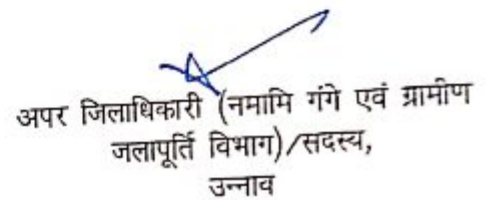 अपर जिलाधिकारी (नमामि गंगे एवं ग्रामीण
जलापूर्ति विभाग)/सदस्य,
उन्नाव